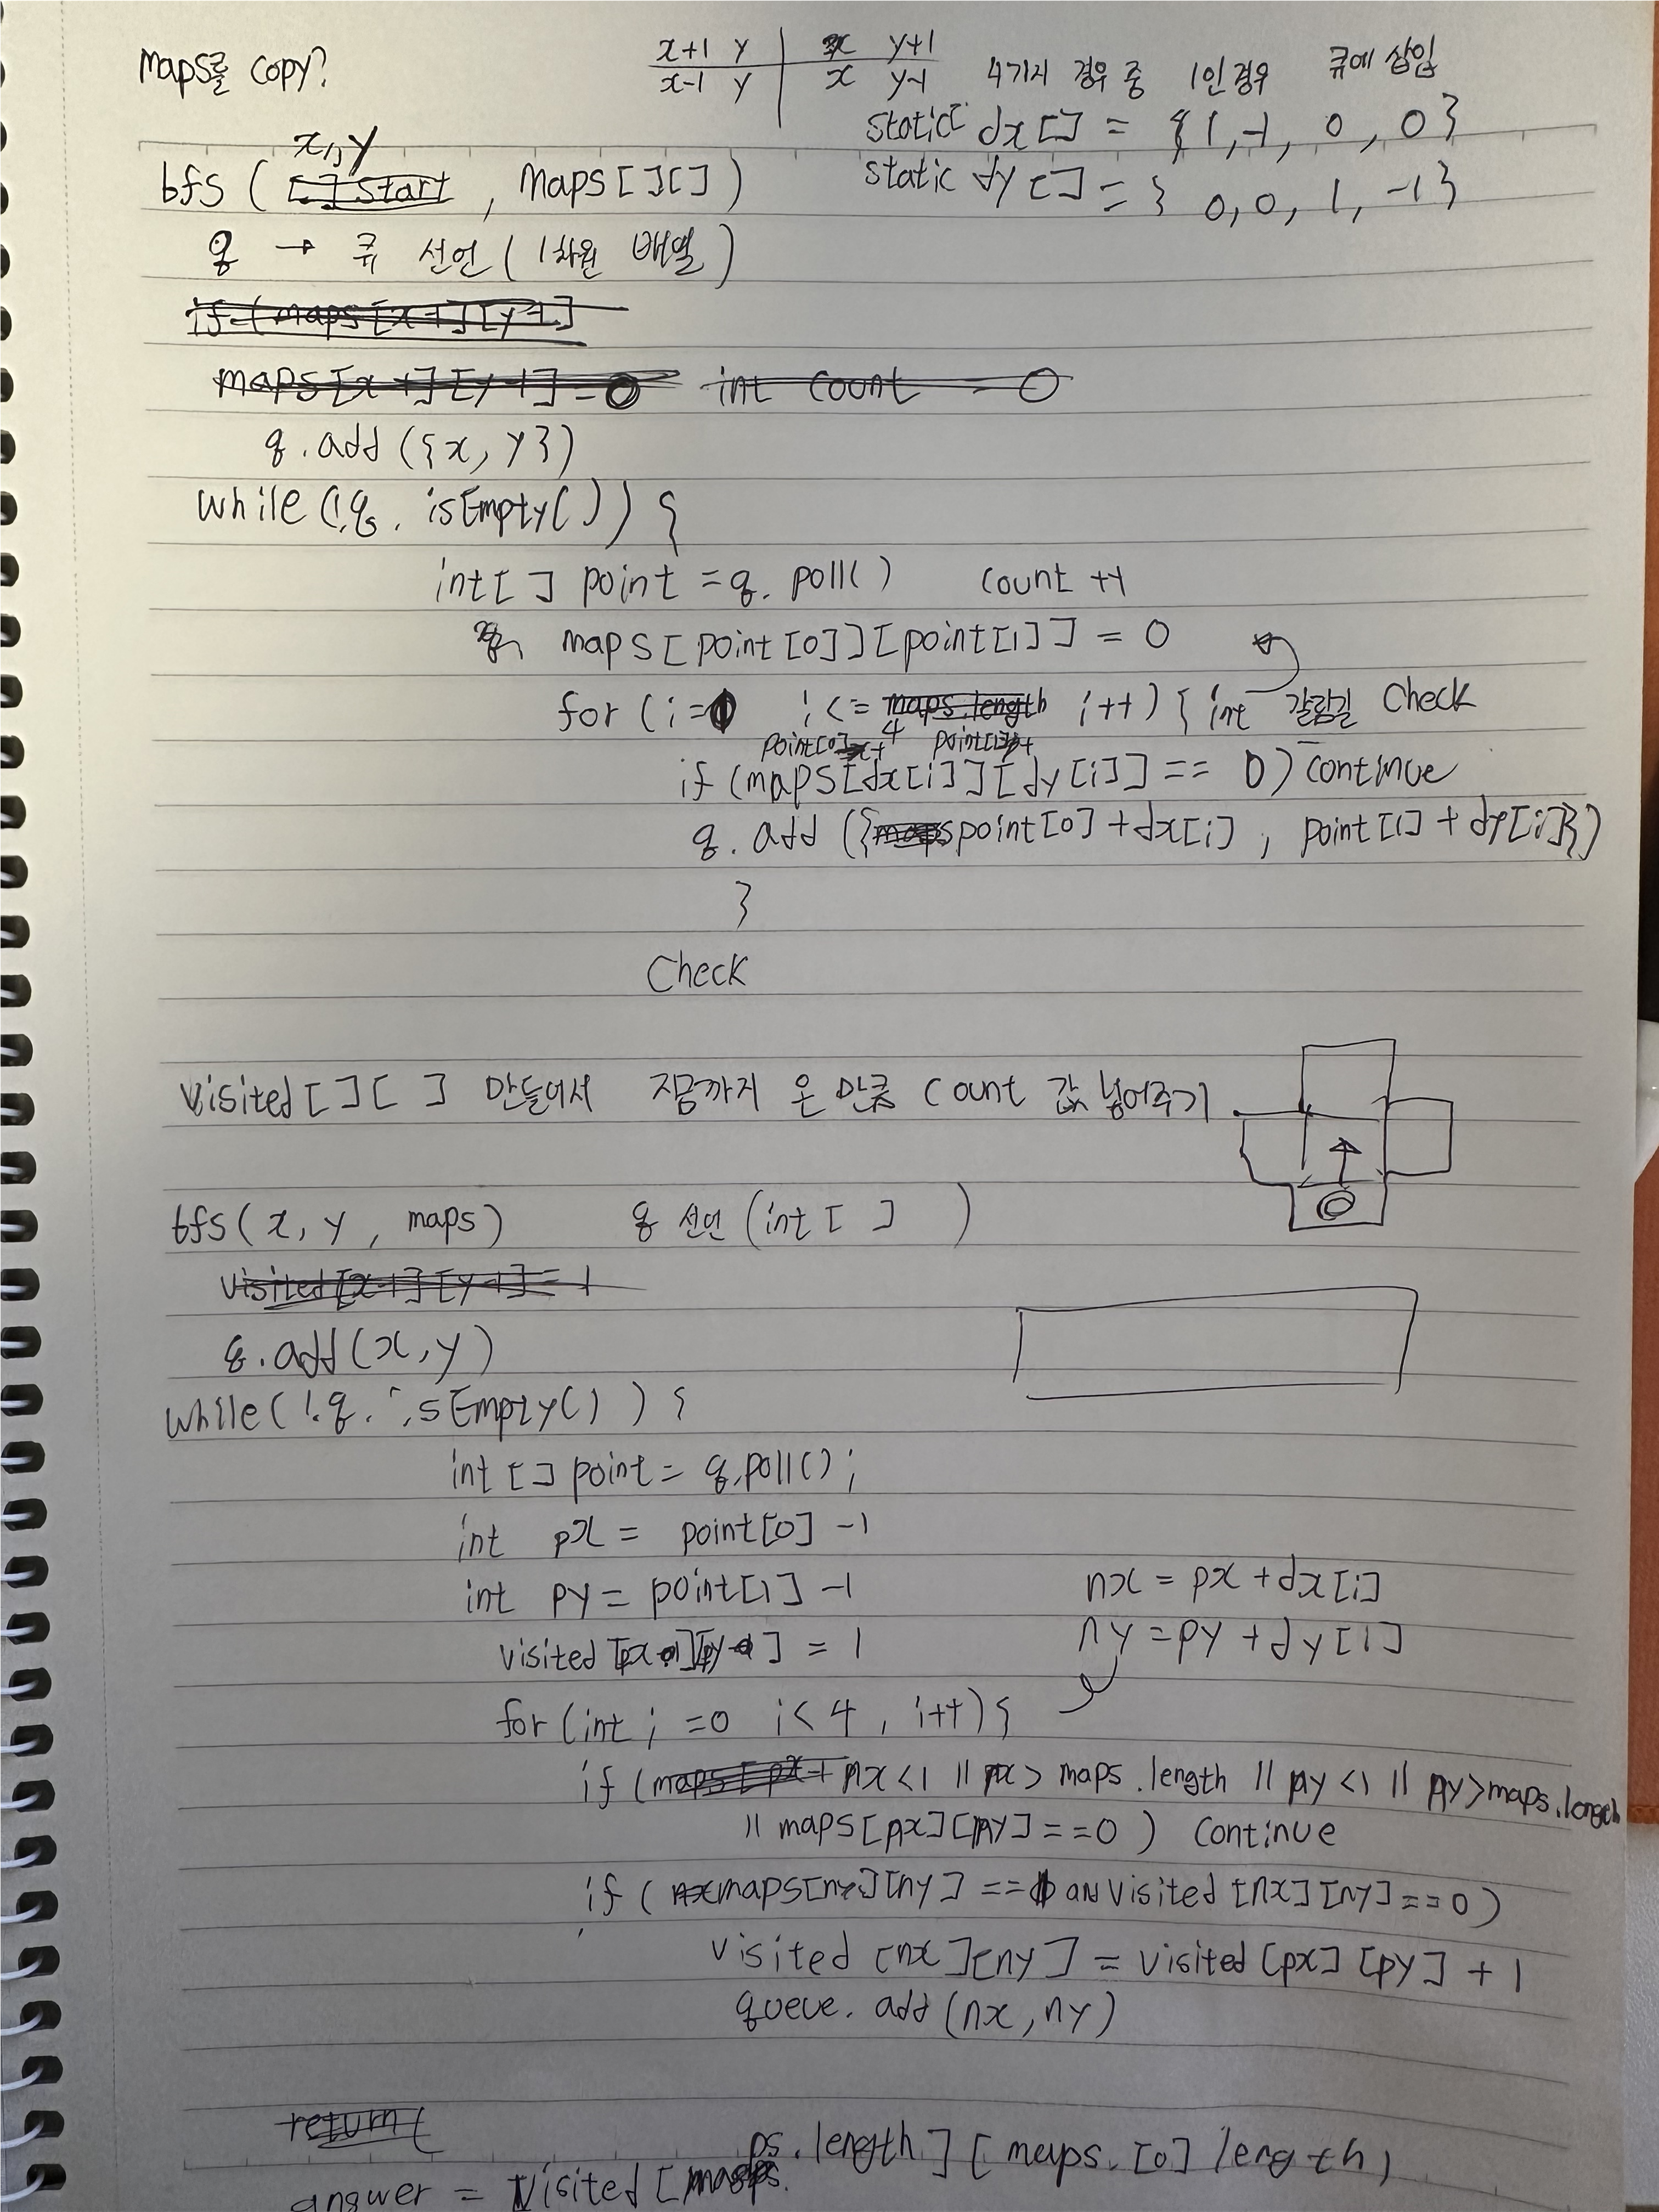 maps를 copy?
x+1 y x y+1
x-1 y x y-1 4가지 경우 중 1인 경우 큐에 삽입
static dx[] = {1,-1, 0, 0}
static dy[] = { 0,0, 1, -1}
x, y
bfs ( []start , maps[][])
q → 큐 선언 ( 1차원 배열 )
if (maps[x-1][y-1]
maps[x-1][y-1] = 0 int count = 0
q.add ({x, y})
while (!q. isEmpty()) {
int[ ] point = q. poll() count ++
maps[point[0]][point[1]] = 0
for (i=0 i<= maps.length i++) { int 갈림길 check
point[0]+ 4 point[1]+
if (maps[dx[i]][dy[i]] == 0) continue
q. add ({maps point[0]+dx[i] , point[1]+dy[i]})
}
Check
visited[][ ] 만들어서 지금까지 온 만큼 count 값 넣어주기
bfs(x, y , maps) q 선언 (int[ ] )
visited[x-1][y-1]=1
q.add(x,y)
while( !q. isEmpty() ) {
int [] point = q.poll();
int px = point[0] -1
int py = point[1] -1
nx = px +dx[i]
ny =py +dy[i]
visited [px ][py ] = 1
for (int i =0 i<4 , i++){
if (maps[px+ nx <1 || nx> maps.length || ny <1 || ny>maps.length
|| maps[nx][ny]==0 ) continue
if ( nx maps[nx][ny] == 1 and visited [nx][ny]==0)
visited [nx][ny] = visited [px] [py] + 1
queue. add (nx, ny)
return (
answer = visited [maps.length] [ maps. [0] length)